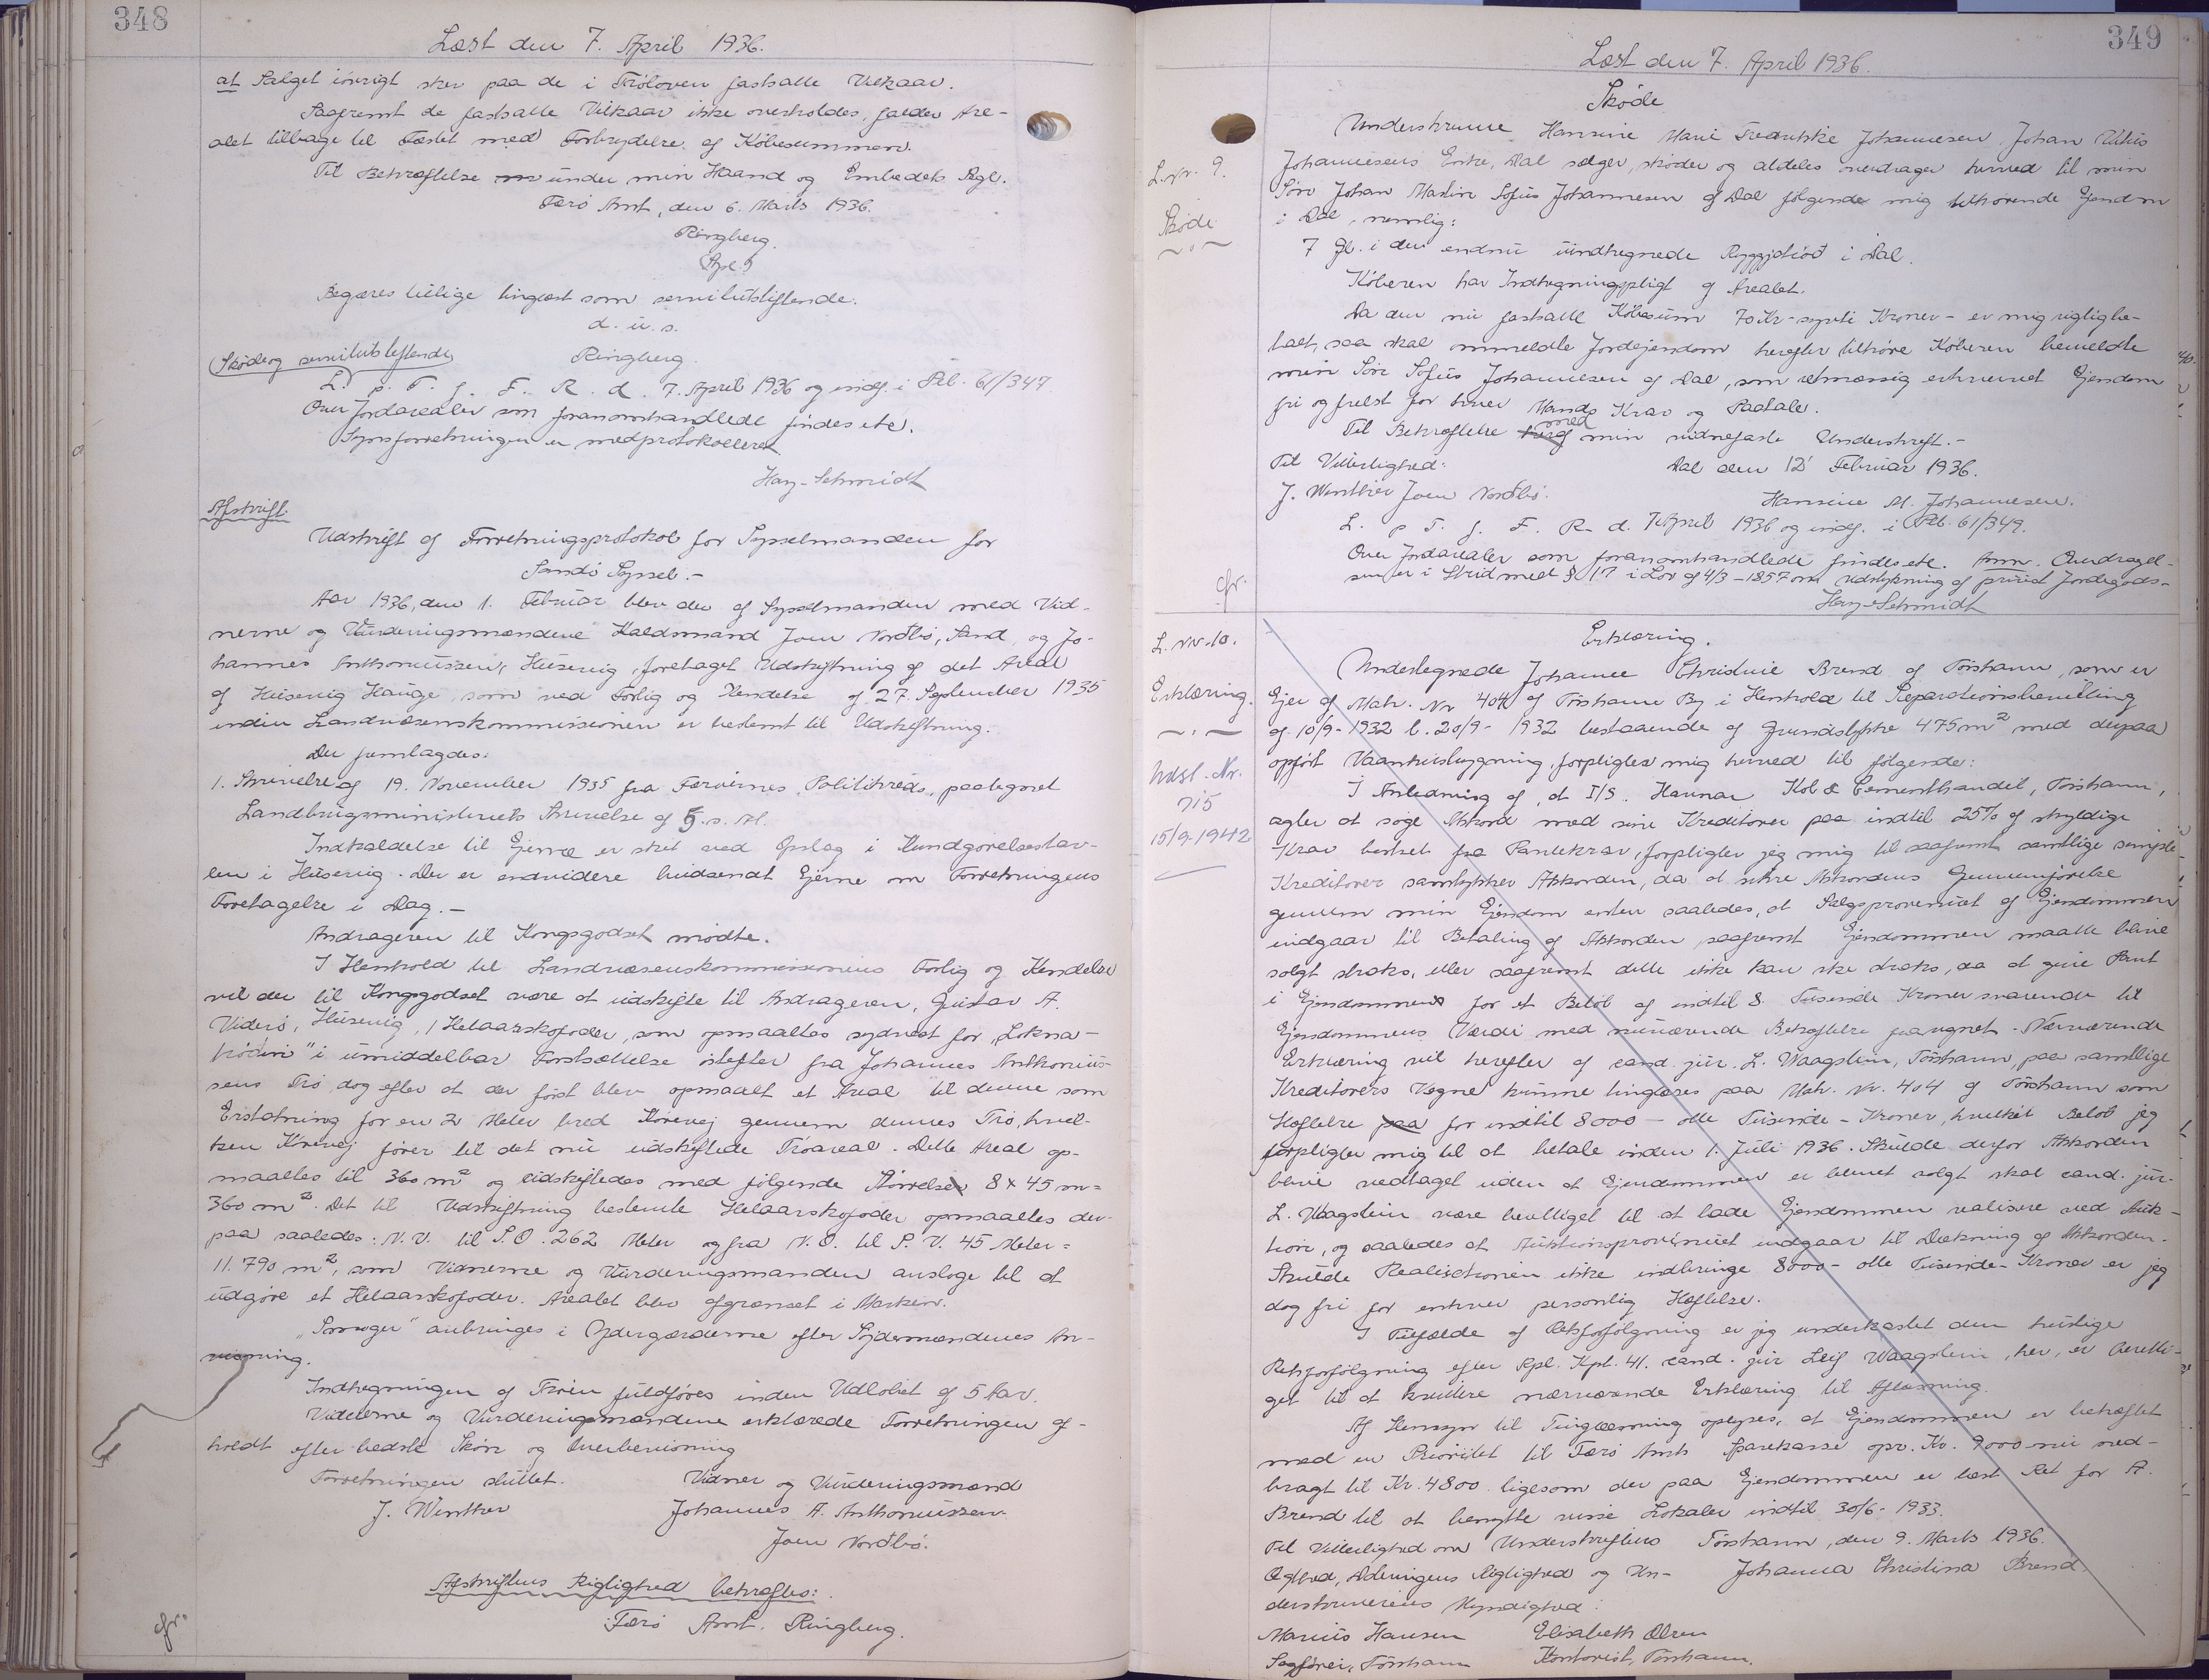 348
Læst den 7. April 1936.
at Salget iøvrigt sker paa de i Trøloven fastsatte Vilkaar.
Saafremt de fastsatte Vilkaar ikke overholdes, falder Are-
alet tilbage til Fæstet med Fortrydelse af Købesummen.
Til Bekræftelse under min Haand og Embedets Segl.
Færø Amt, den 6. Marts 1936.
Ringberg.
Begæres tillige tinglæst som servitutstiftende.
d. u. s.
Ringberg.
Skøde og servitutstiftende
L. p. T. f. F. R. d. 7. April 1936 og indf. i Pb. 61/347
Over Jordarealer som foranomhandlede findes ete.
Synsforretningen er medprotokolleret
Hay-Schmidt
Afskrift.
Udskrift af Forretningsprotokol for Sysselmanden for
Sandø Syssel.-
Aar 1936, den 1. Februar blev der af Sysselmanden med Vid-
nerne og Vurderingsmændene Kaldsmand Joen Norðbø, Sand, og Jo-
hannes Anthoniussen, Húsavig, foretaget Udskiftning af det Areal
af Húsavig Hauge, som ved Forlig og Kendelse af 27. September 1935
inden Landvæsenskommissionen er bestemt til Udskiftning.
Der fremlagdes:
1. Skrivelse af 19. November 1935 fra Færøernes Politikreds, paategnet
Landbrugsministeriets Skrivelse af 5. s. M.
Indkaldelse til Ejerne er sket ved Opslag i Kundgørelsestav-
len i Húsavig. Der er endvidere budsendt Ejerne om Forretningens
Foretagelse i Dag.-
Andrageren til Kongsgodset mødte.
I Henhold til Landvæsenskommissionens Forlig og Kendelse
vil der til Kongsgodset være at udskifte til Andrageren, Gustav A.
Viderø, Húsavig, 1 Helaarskofoder, som opmaaltes sydvest for „Lokna-
trøðini" i umiddelbar Fortsættelse østefter fra Johannes Anthonius-
sens Trø, dog efter at der først blev opmaalt et Areal til denne som
Erstatning for en 2 Meter bred Kørevej gennem dennes Trø, hvil-
ken Kørevej fører til det nu udskiftede Trøareal. Dette Areal op-
maaltes til 360 m² og udskiftedes med følgende Størrelse 8 x 45 m =
360 m². Det til Udskiftning bestemte Helaarskofoder opmaaltes der-
paa saaledes: N.V. til S.Ø. 262 Meter og fra N.Ø. til S.V. 45 Meter =
11.790 m², som Vidnerne og Vurderingsmænden ansloge til at
udgøre et Helaarskofoder. Arealet blev afgrænset i Marken.
„Smoger" anbringes i Ydergærderne efter Sejdemændenes An-
visning.
Indhegningen af Trøen fuldføres inden Udløbet af 5 Aar.
Vidnerne og Vurderingsmændene erklærede Forretningen af-
holdt efter bedste Skøn og Overbevisning
Forretningen sluttet. Vidner og Vurderingsmænd
J. Winther Johannes A. Anthoniussen.
Joen Norðbø.
Afskriftens Rigtighed bekræftes:
Færø Amt. Ringberg.
cfr.
349
Læst den 7. April 1936.
Skøde
L. Nr. 9.
Skøde
Underskrevne Hansine Marie Fredrikke Johannesen, Johan
Johannesens Enke, Dal sælger, skøder og aldeles overdrager herved til min
Søn Johan Martin Sofus Johannesen af Dal følgende mig tilhørende Ejendom
i Dal, nemlig:
7 Gl. i den endnu uindhegnede i Dal.
Køberen har Indhegningspligt af Arealet.
Da den nu fastsatte Købesum 70 Kr - syvti Kroner - er mig rigtig be-
talt, saa skal ommeldte Jordejendom herefter tilhøre Køberen bemeldte
min Søn Sofus Johannesen af Dal, som retmæssig erhvervet Ejendom
fri og frelst for hver Mands Krav og Paatale.
Til Bekræftelse med min vidnefaste Underskrift.-
Til Vitterlighed: Dal den 12' Februar 1936.
J. Winther Joen Norðbø. Hansine M. Johannesen.
L. p T. f. F. R. d. 7 April 1936 og indf. i Pb. 61/349.
Over Jordarealer som foranomhandlede findes ete. Anm. Overdragel-
sen er i Strid med § 17 i Lov af 4/3-1857 om Udstykning af privat Jordegods.-
cfr.
Hay-Schmidt
L. Nr. 10.
Erklæring.
Udsl. Nr.
715
15/9-1942
Erklæring.
Undertegnede Johanne Christine Brend af Tórshavn, som er
Ejer af Matr. Nr 404 af Tórshavn By i Henhold til Reparationsbevilling
af 10/9-1932 l. 20/9-1932 bestaaende af Grundstykke 475 m² med derpaa
opført Vaaningsbygning, forpligter mig herved til følgende:
I Anledning af, at I/S. Hannar Kol & Cementhandel, Tórshavn,
agter at søge Akkord med sine Kreditorer paa indtil 25% af skyldige
Krav bortset fra Pantekrav, forpligter jeg mig til saafremt samtlige simple
Kreditorer samtykker Akkorden, da at sikre Akkordens Gennemførelse
gennem min Ejendom enten saaledes, at Salgsprovenuet af Ejendommen
indgaar til Betaling af Akkorden, saafremt Ejendommen maatte blive
solgt straks, eller saafremt dette ikke kan ske straks, da at give Pant
i Ejendommen for et Beløb af indtil 8 Tusinde Kroner svarende til
Ejendommens Værdi med nuværende Behæftelse fraregnet. Nærværende
Erklæring vil herefter af cand. jur. L. Waagstein, Tórshavn, paa samtlige
Kreditorers Vegne kunne tinglæses paa Matr. Nr. 404 af Tórshavn som
Hæftelse for indtil 8000 - otte Tusinde - Kroner, hvilket Beløb jeg
forpligter mig til at betale inden 1. Juli 1936. Skulde derfor Akkorden
blive vedtaget uden at Ejendommen er blevet solgt skal cand. jur.
L. Waagstein være bevilliget til at lade Ejendommen realisere ved Auk-
tion, og saaledes at Auktionsprovenuet indgaar til Dækning af Akkorden.
Skulde Realisationen ikke indbringe 8000 - otte Tusinde - Kroner er jeg
dog fri for enhver personlig Hæftelse.
I Tilfælde af Retsforfølgning er jeg underkastet den hurtige
Retsforfølgning efter Rpl. Kpt. 41. cand. jur Leif Waagstein, her, er beretti-
get til at kvittere nærværende Erklæring til Aflæsning.
Af Hensyn til Tinglæsning oplyses, at Ejendommen er behæftet
med en Prioritet til Færø Amts Sparekasse opr. Kr. 9000 nu ned-
bragt til Kr. 4800 ligesom der paa Ejendommen er læst Ret for A.
Brend til at benytte visse Lokaler indtil 30/6-1933.
Til Vitterlighed om Underskriftens Tórshavn, den 9. Marts 1936.
Ægthed, Dateringens Rigtighed og Un- Johanna Christina Brend
derskriverens Myndighed:
Marius Hansen Elisabeth Olsen
Sagfører, Tórshavn Kontorist, Tórshavn.